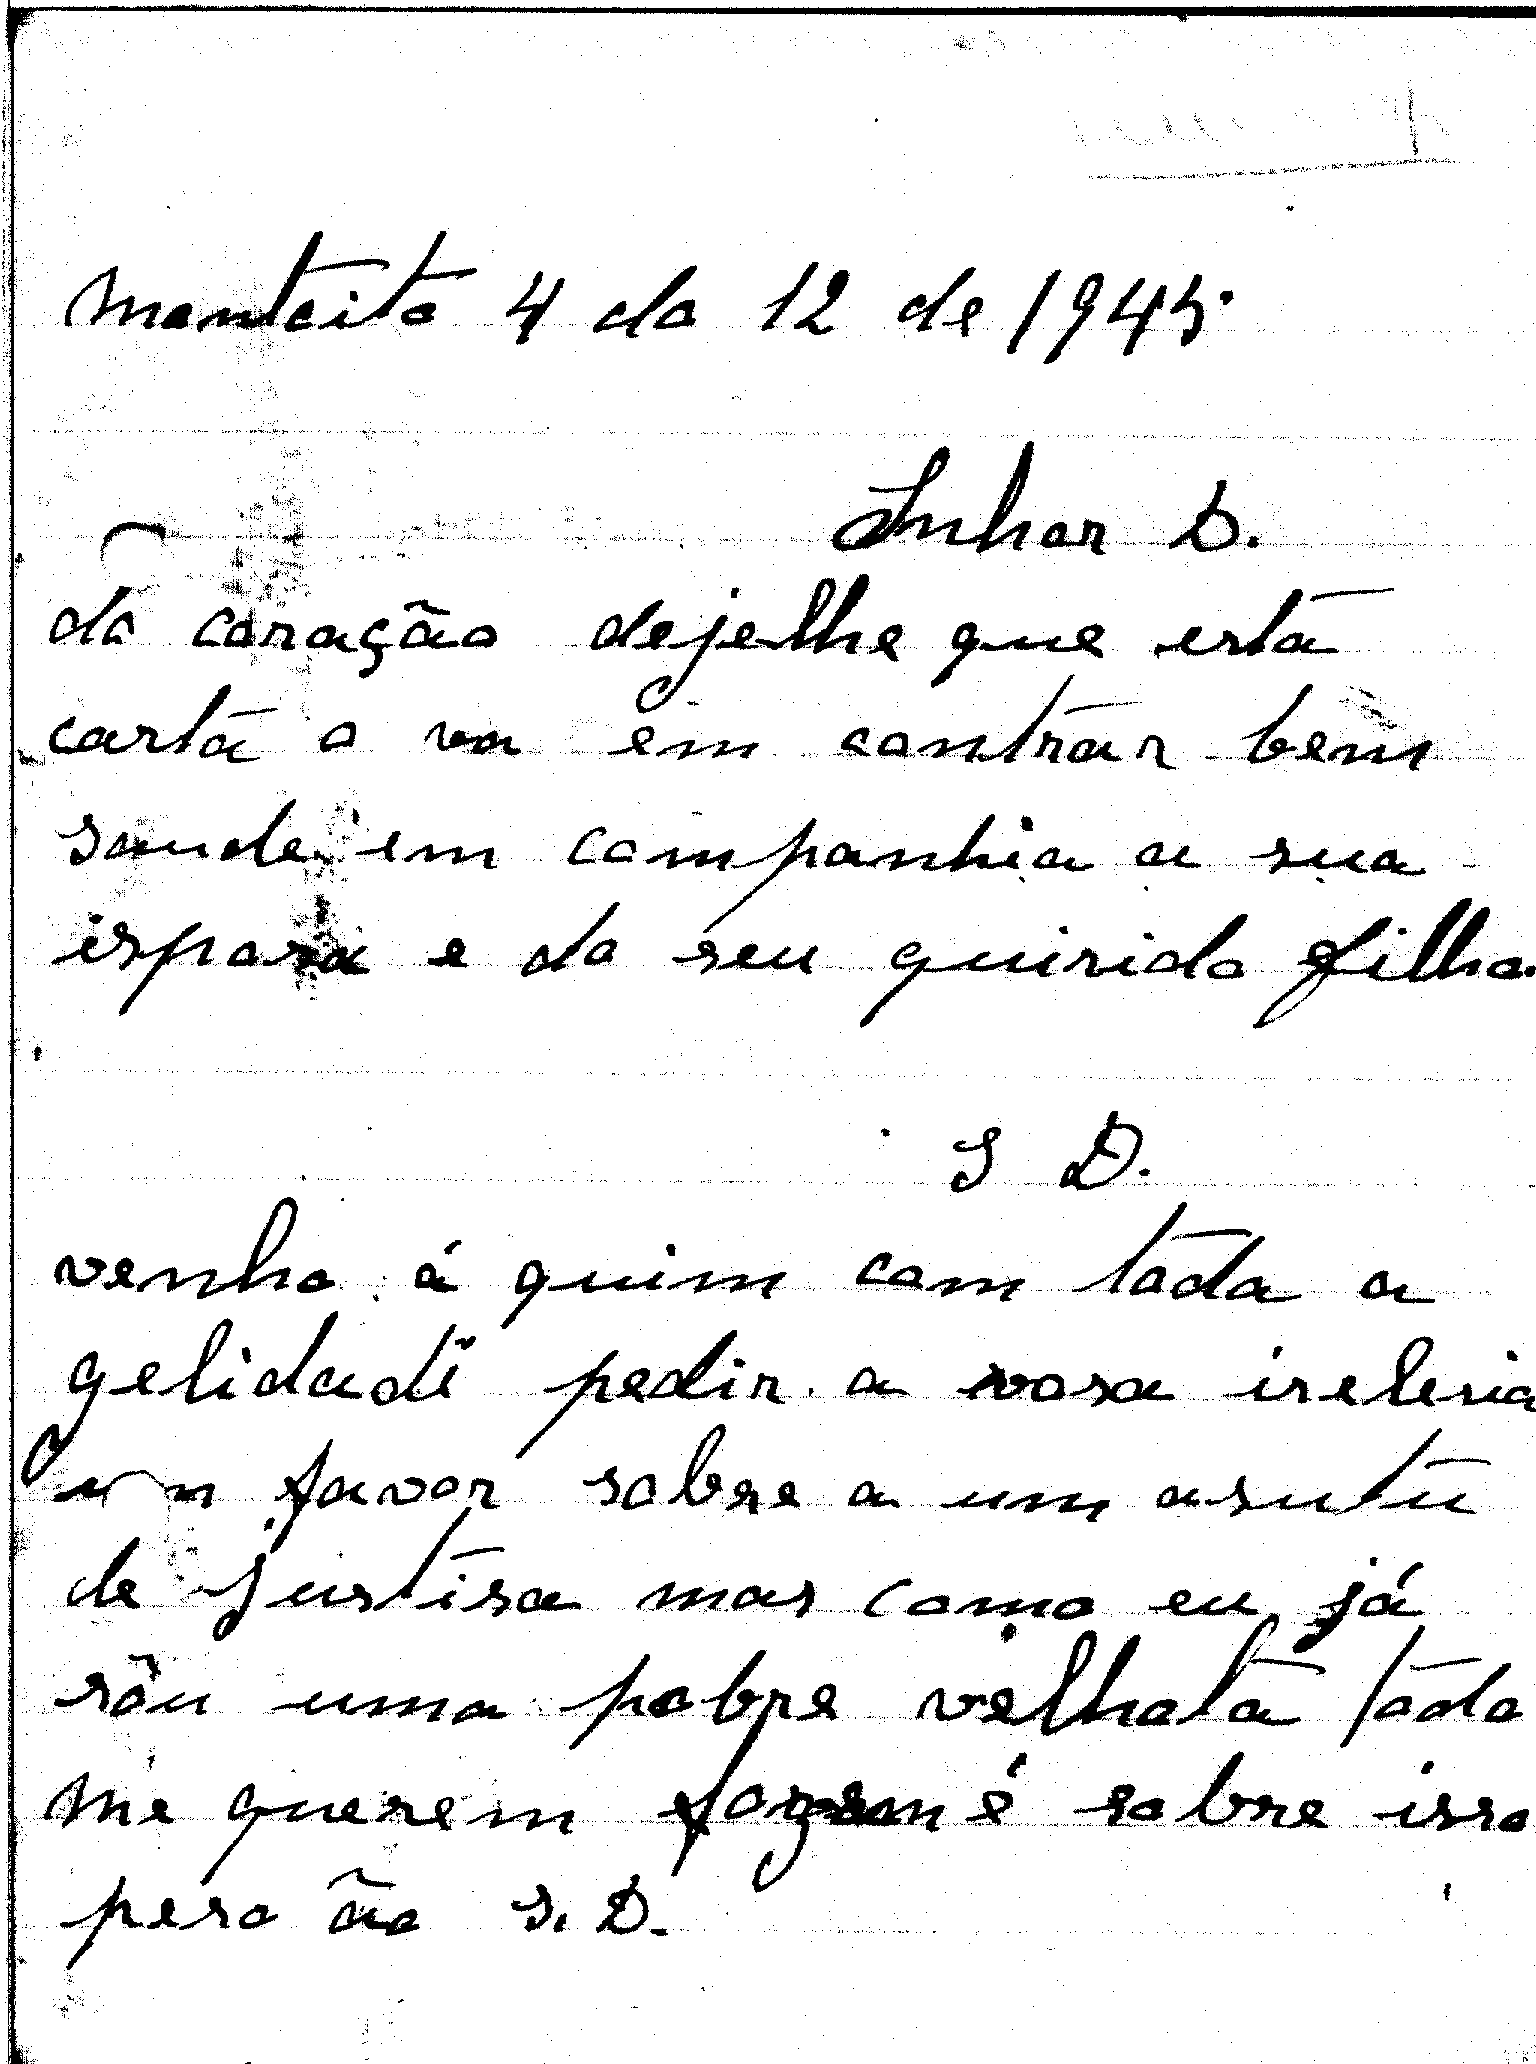 Monteito 4 do 12 de 1945.
Snhor D.
do coração dejelhe que esta
carta o va em contrar bem
saude em companhia a sua
isposa e do seu quirido filho.
S D.
venho á quim com toda a
gelidade pedir a vosa iselesia
um favor sobre a um asutu
de justisa mas como eu já
sôu uma pobre velhota todo
me querem fazem é sobre isso
peso ão S. D.